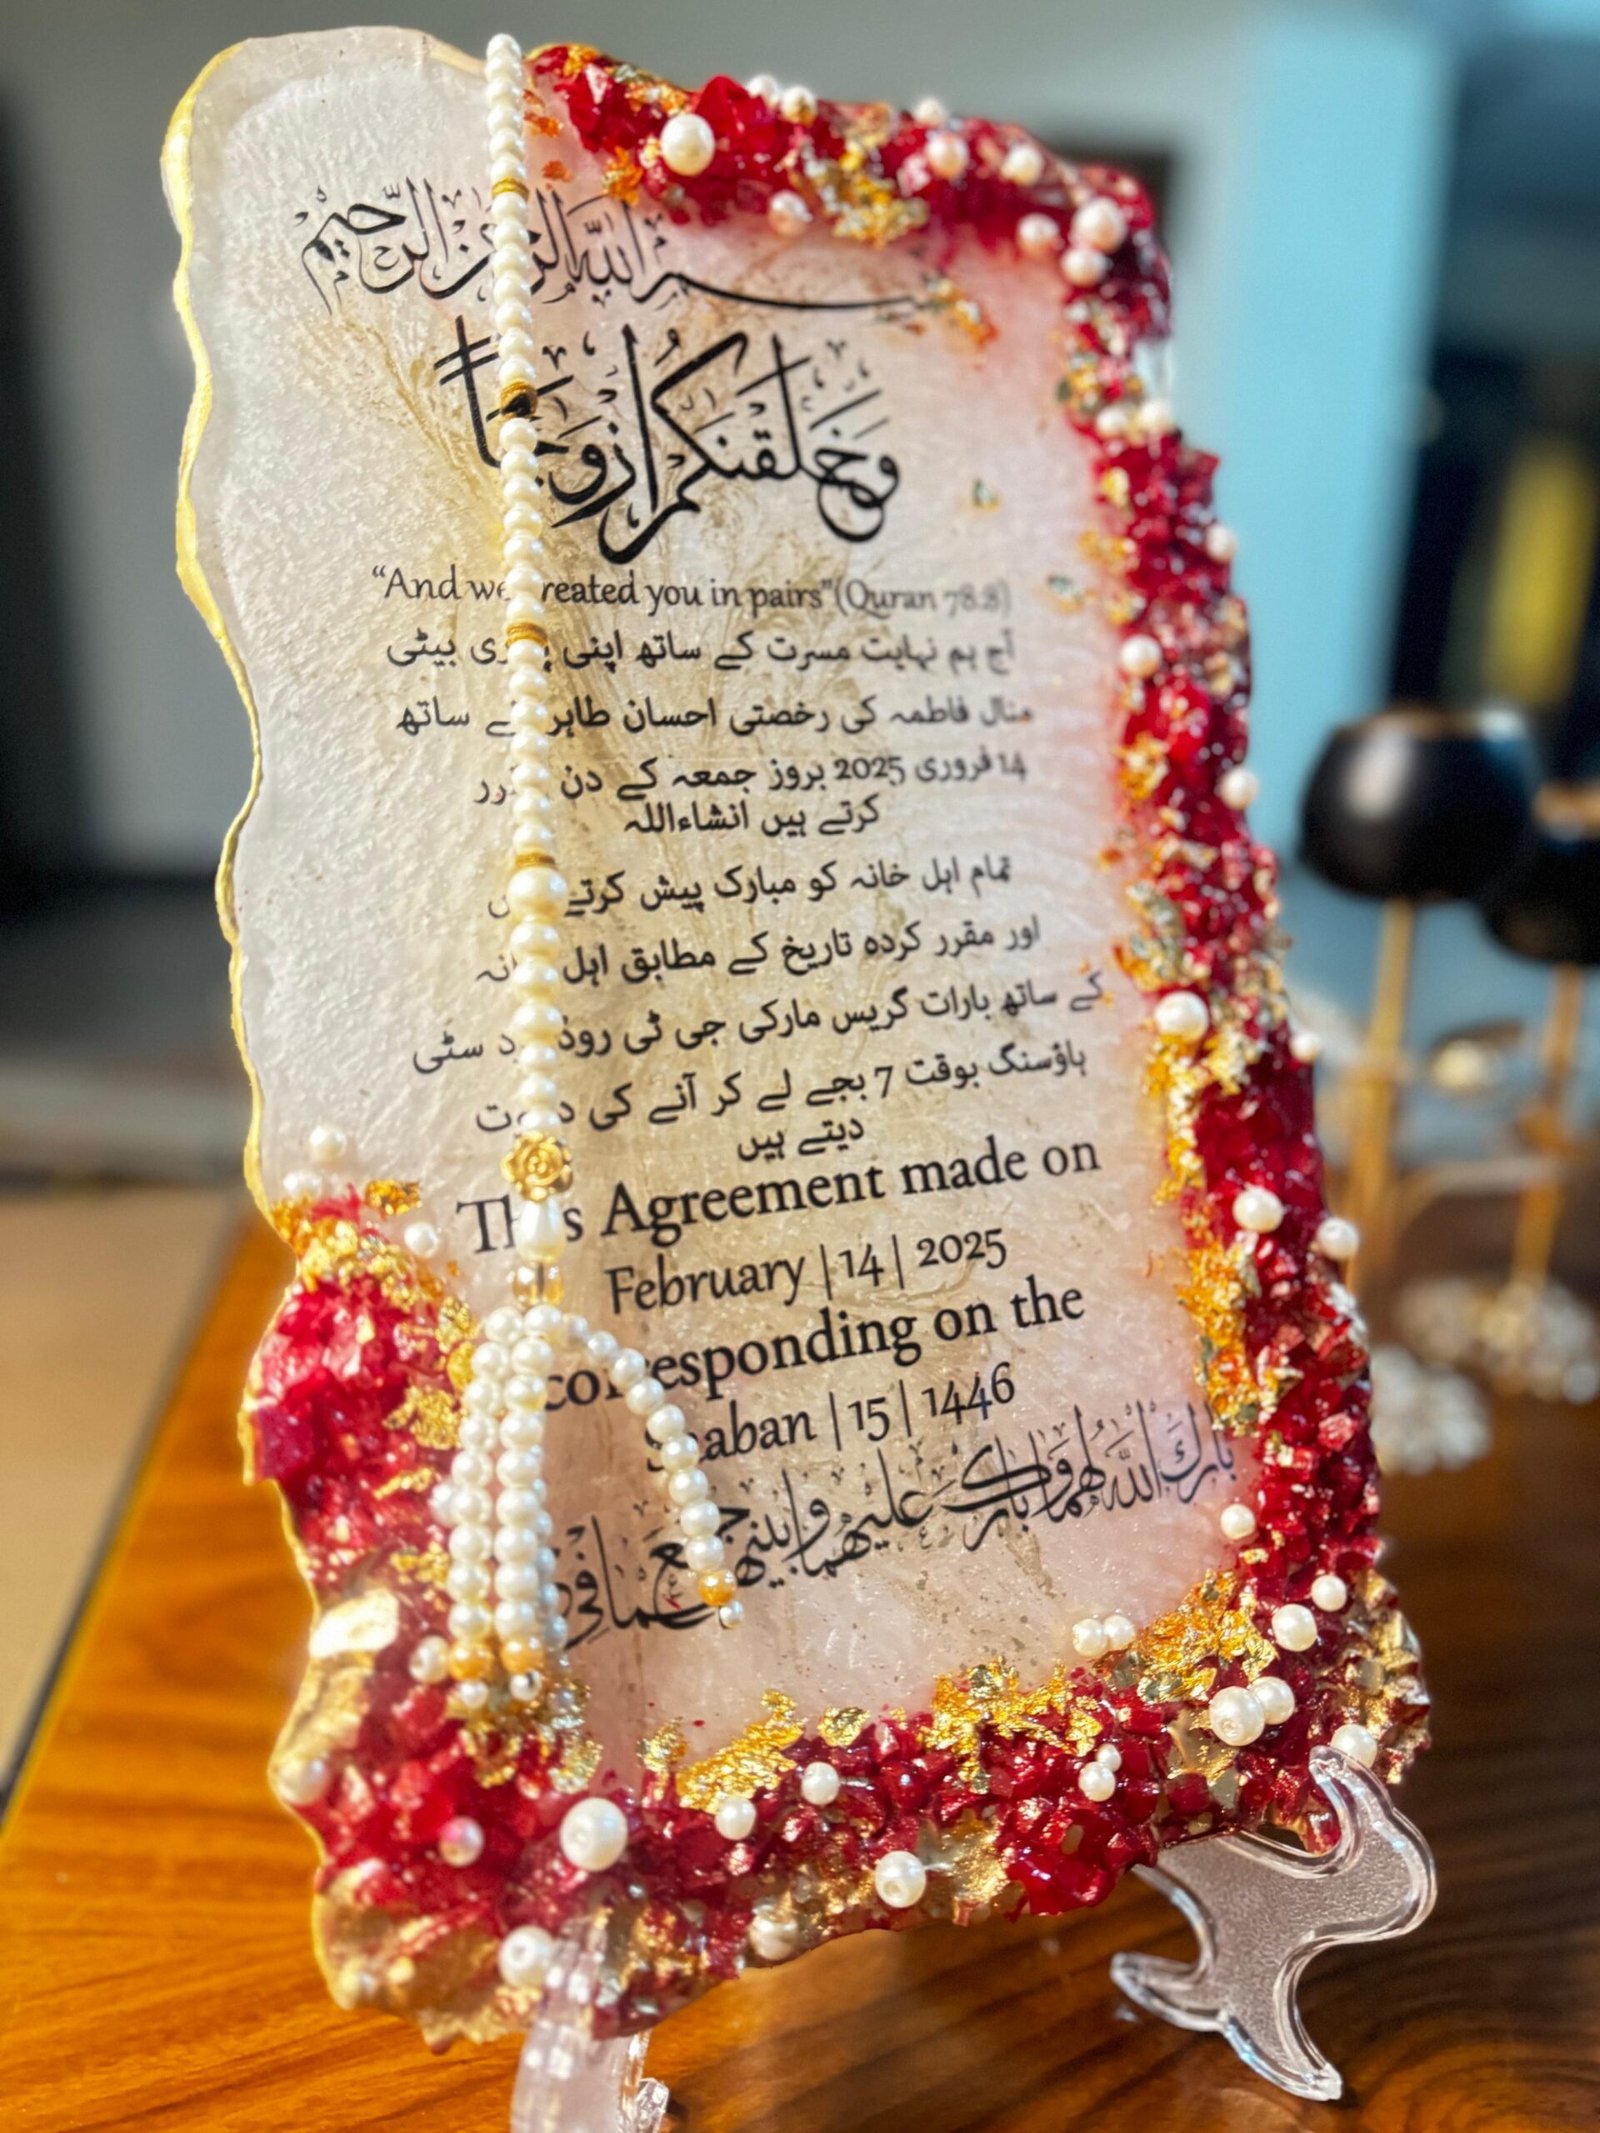 بسم الله الرحمن الرحيم
وَخَلَقْنَكُمْ أَزْوَجًا
“And we reated you in pairs”(Quran 78:8)
آج ہم نہایت مسرت کے ساتھ اپنی بیٹی
منال فاطمہ کی رخصتی احسان طاہر کے ساتھ
14 فروری 2025 بروز جمعہ کے دن
کرتے ہیں انشاءاللہ
تمام اہل خانہ کو مبارک پیش کرتے
اور مقرر کردہ تاریخ کے مطابق اہل
کے ساتھ بارات گریس مارکی جی ٹی روڈ سٹی
ہاؤسنگ بوقت 7 بجے لے کر آنے کی
دیتے ہیں
This Agreement made on
February | 14 | 2025
corresponding on the
Shaaban | 15 | 1446
بارك الله لهما وبارك عليهما وجمع بينهما في